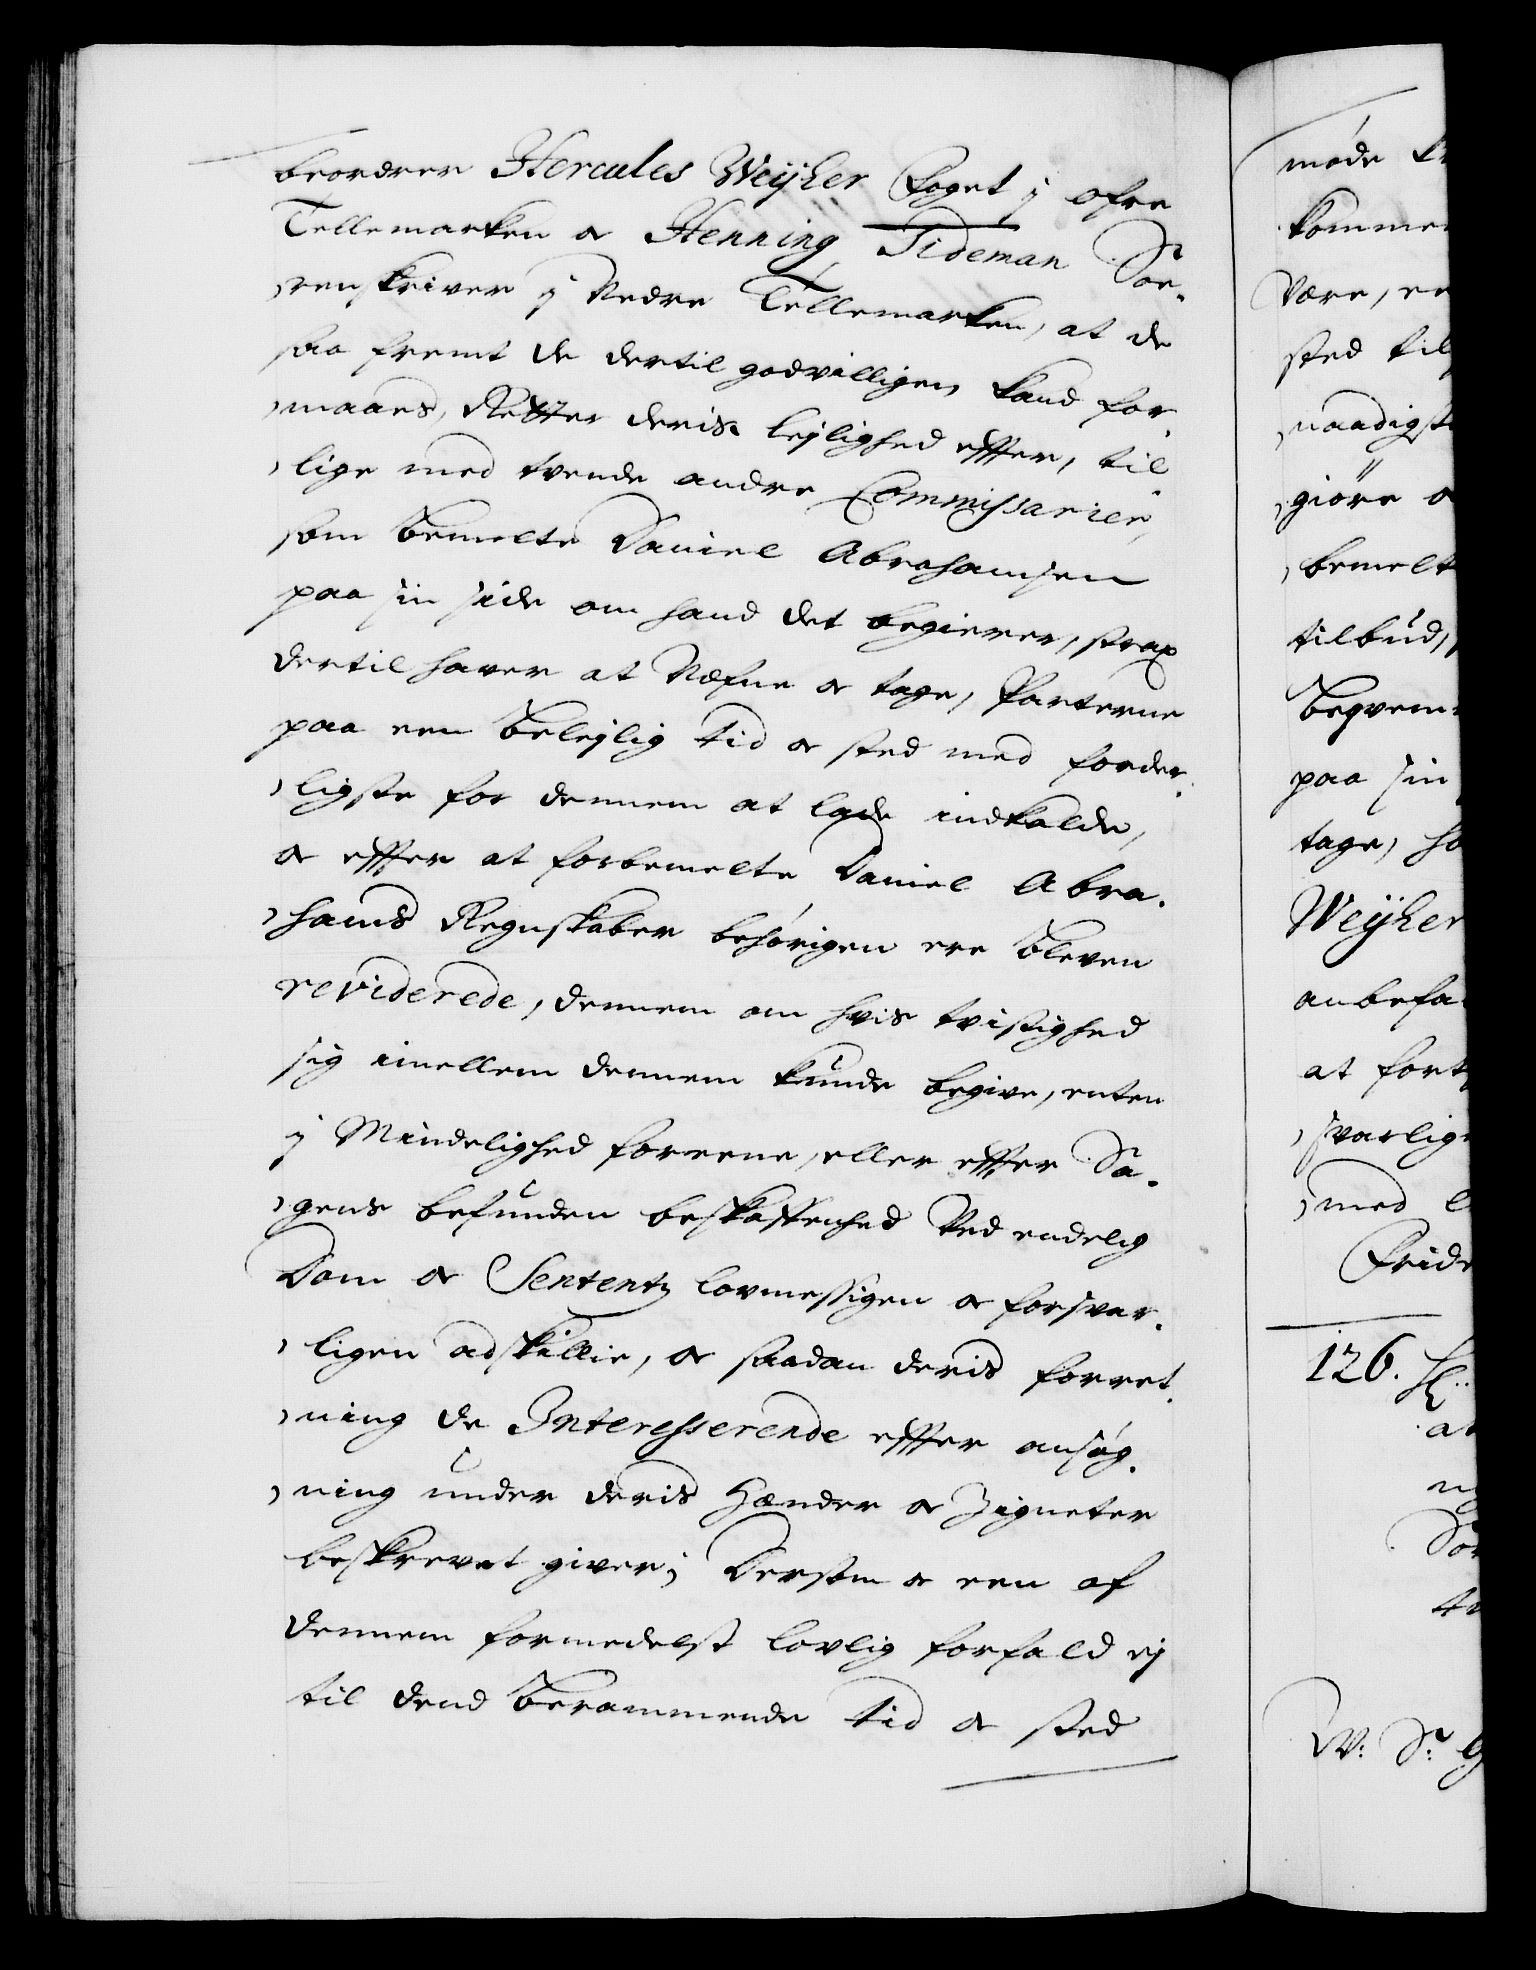 beordrer Hercules Weÿher Foget j øfre
Tellemarken og Henning Tideman Soe-
renskriver j Nedre Tellemarken, at de
saa fremt de dertil godvilligen kand for-
maaes, Retter deris lejlighed effter, til
lige med tvende andre Commissarier,
som bemelte Daniel Abrahamsen
paa sin side om hand det begierer, strax
dertil haver at Nefne og tage, Parterne
paa een belejlig tid og sted med forder-
ligste for dennem at lade indkalde,
og effter at forbemelte Daniel Abra-
hams Regnskaber behörigen ere bleven
reviderede, dennem om hvis tvistighed
sig imellem dennem kunde begive, enten
j Mindelighed foreene, eller effter Sa-
gens befunden beskaffenhed Ved endelig
Dom og Sententz lovmessigen og forsvar-
ligen adskillie, og saadan deris forret-
ning de Interesserende effter ansøg-
ning under deris Hænder og Zigneter
beskrevet giver; Dersom og een af
dennem formedelst lovlig forfald ej
til dend berammende tid og sted
møde
komme
Være, en
sted til
naadigst
giöre o
bemelt
tilbud,
beqvem
paa sin
tage, ha
Weÿher
anbefa
at fort
svarlig
med
Frid
126.
at
Sör